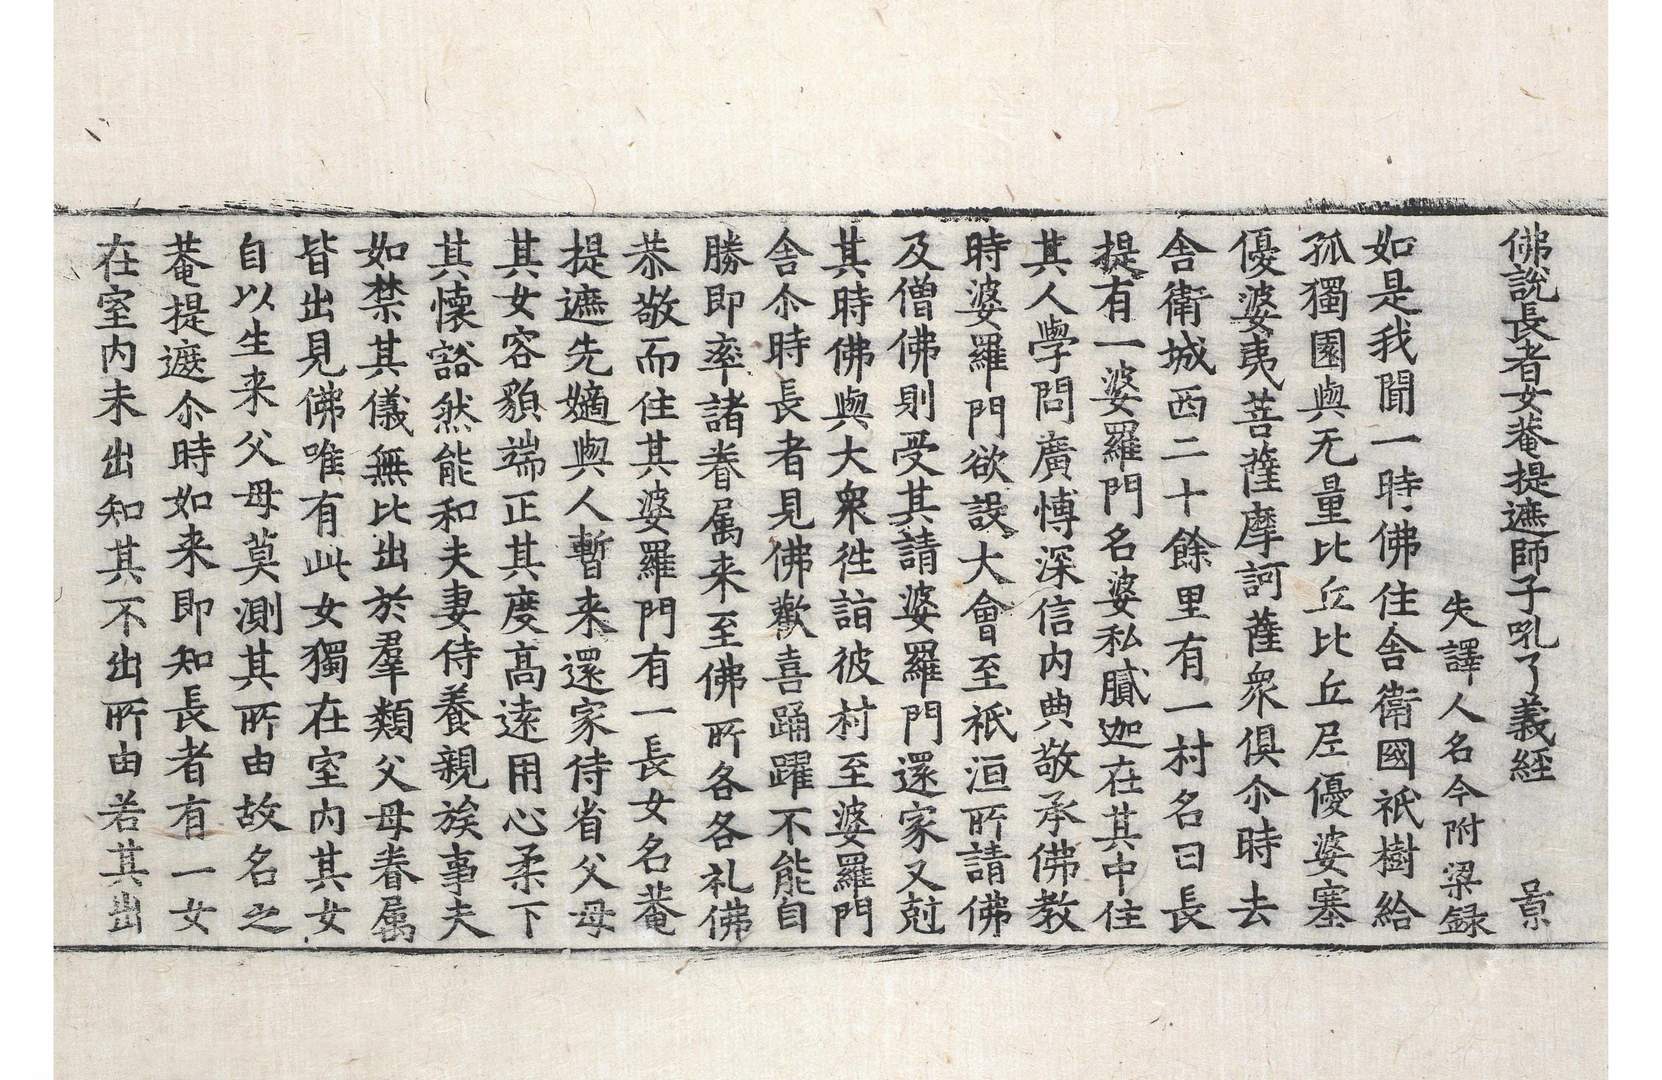 佛說長者女菴提遮師子吼了義經 景
失譯人名今附梁録
如是我聞一時佛住舎衛國祇樹給
孤獨園與无量比丘比丘尼優婆塞
優婆夷菩薩摩訶薩衆俱尒時去
舎衛城西二十餘里有一村名曰長
提有一婆羅門名婆私膩迦在其中住
其人學問廣愽深信内典敬承佛教
時婆羅門欲設大會至祇洹所請佛
及僧佛則受其請婆羅門還家又尅
其時佛與大衆徃詣彼村至婆羅門
舎尒時長者見佛歡喜踊躍不能自
勝即率諸眷属来至佛所各各礼佛
恭敬而住其婆羅門有一長女名菴
提遮先嫡與人暫来還家侍省父母
其女容貌端正其度高遠用心柔下
其懐豁然能和夫妻侍養親族事夫
如禁其儀無比出於羣類父母眷属
皆出見佛唯有此女獨在室内其女
自以生来父母莫測其所由故名之
菴提遮尒時如来即知長者有一女
在室内未出知其不出所由若其出